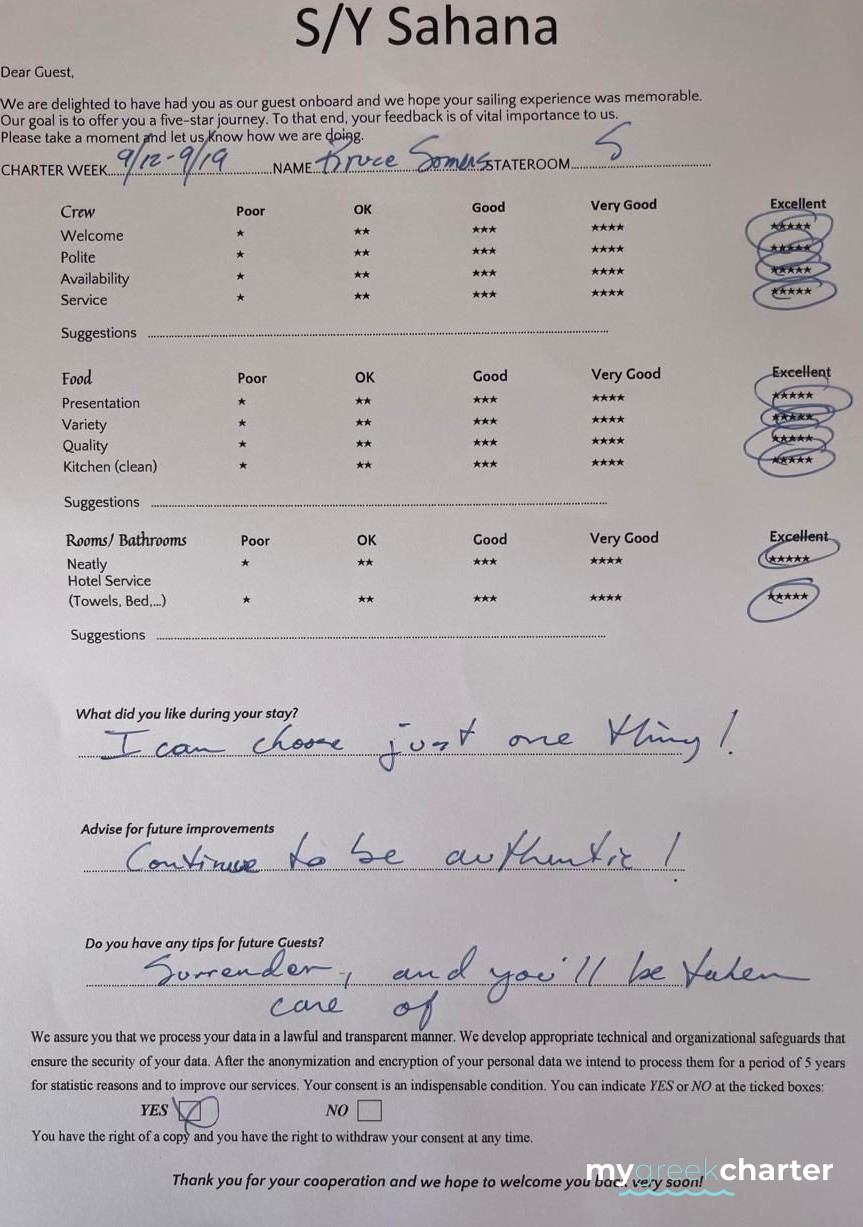 S/Y Sahana
Dear Guest,
We are delighted to have had you as our guest onboard and we hope your sailing experience was memorable.
Our goal is to offer you a five-star journey. To that end, your feedback is of vital importance to us.
Please take a moment and let us know how we are doing.
CHARTER WEEK 9/12-9/19 NAME Bruce Somers STATEROOM 5
Crew Poor OK Good Very Good Excellent
Welcome ★ ★★ ★★★ ★★★★ ★★★★★
Polite ★ ★★ ★★★ ★★★★ ★★★★★
Availability ★ ★★ ★★★ ★★★★ ★★★★★
Service ★ ★★ ★★★ ★★★★ ★★★★★
Suggestions
Food Poor OK Good Very Good Excellent
Presentation ★ ★★ ★★★ ★★★★ ★★★★★
Variety ★ ★★ ★★★ ★★★★ ★★★★★
Quality ★ ★★ ★★★ ★★★★ ★★★★★
Kitchen (clean) ★ ★★ ★★★ ★★★★ ★★★★★
Suggestions
Rooms/ Bathrooms Poor OK Good Very Good Excellent
Neatly ★ ★★ ★★★ ★★★★ ★★★★★
Hotel Service
(Towels, Bed,...) ★ ★★ ★★★ ★★★★ ★★★★★
Suggestions
What did you like during your stay?
I can choose just one thing!
Advise for future improvements
Continue to be authentic!
Do you have any tips for future Guests?
Surrender, and you'll be taken
care of
We assure you that we process your data in a lawful and transparent manner. We develop appropriate technical and organizational safeguards that
ensure the security of your data. After the anonymization and encryption of your personal data we intend to process them for a period of 5 years
for statistic reasons and to improve our services. Your consent is an indispensable condition. You can indicate YES or NO at the ticked boxes:
YES NO
You have the right of a copy and you have the right to withdraw your consent at any time.
mygreekcharter
Thank you for your cooperation and we hope to welcome you back very soon!